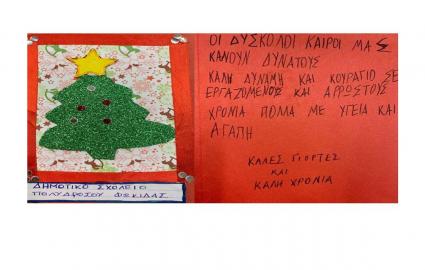 ΔΗΜΟΤΙΚΟ ΣΧΟΛΕΙΟ
ΠΟΛΥΔΡΟΣΟΥ ΦΩΚΙΔΑΣ
ΟΙ ΔΥΣΚΟΛΟΙ ΚΑΙΡΟΙ ΜΑΣ
ΚΑΝΟΥΝ ΔΥΝΑΤΟΥΣ
ΚΑΛΗ ΔΥΝΑΜΗ ΚΑΙ ΚΟΥΡΑΓΙΟ ΣΕ
ΕΡΓΑΖΟΜΕΝΟΥΣ ΚΑΙ ΑΡΡΩΣΤΟΥΣ
ΧΡΟΝΙΑ ΠΟΛΛΑ ΜΕ ΥΓΕΙΑ ΚΑΙ
ΑΓΑΠΗ
ΚΑΛΕΣ ΓΙΟΡΤΕΣ
ΚΑΙ
ΚΑΛΗ ΧΡΟΝΙΑ